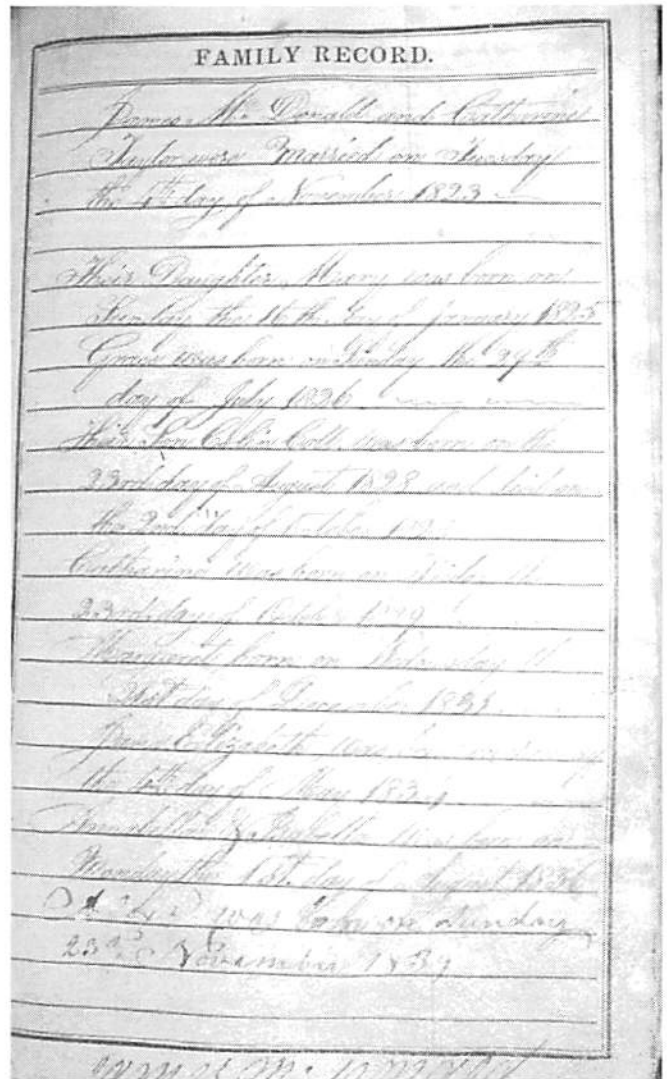 FAMILY RECORD.
James Mc Donald and Catharine
Taylor were Married on Tuesday
the 4th day of November 1823
Their Daughter Mary was born on
Sunday the 16th day of January 1825
Grace was born on the 29th
day of July 1826
Their Son Colin was born on the
23rd day of August 1828 and died on
the 2nd day of October
Catharine was born on Friday the
23rd day of October 1829
Margaret born on Wednesday
21st day of December 1831
Jane Elizabeth was born on
the 4th day of May 1834
& Isabella was born on
Monday the 1st day of August 1836
was born on Sunday
23rd November 1839